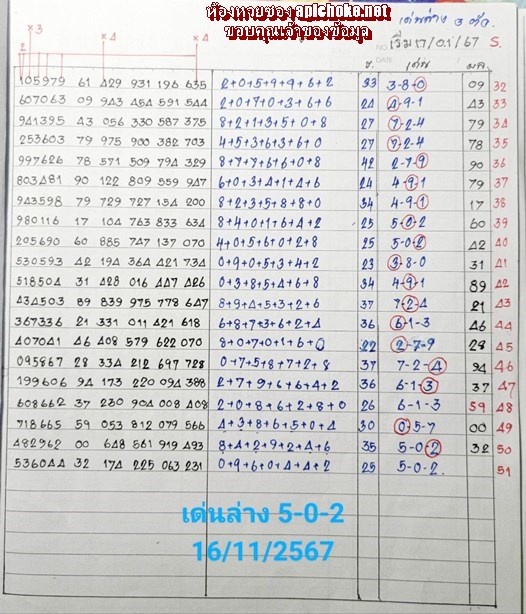 ห้องหวยของ anichoke.net
ขอบคุณเจ้าของข้อมูล
เด่นล่าง 3 ตัว
×3 ×4 ×4 NO. เริ่ม 17/01/67 S.
2 DATE
ร. เด่น ผล
105979 61 429 931 196 635 2+0+5+9+9+6+2 33 3-8-0 09 32
607063 09 943 454 591 544 2+0+7+0+3+6+6 24 4-9-1 43 33
941395 43 056 330 587 375 8+2+1+3+5+0+8 27 7-2-4 79 34
253603 79 975 900 382 703 4+5+3+6+3+6+0 27 7-2-4 78 35
997626 78 571 509 794 329 8+7+7+6+6+0+8 42 2-7-9 90 36
803481 90 122 809 559 947 6+0+3+4+1+4+6 24 4-9-1 79 37
943598 79 729 727 154 200 8+2+3+5+8+8+0 34 4-9-1 17 38
980116 17 104 763 833 634 8+4+0+1+6+4+2 25 5-0-2 60 39
205690 60 885 747 137 070 4+0+5+6+0+2+8 25 5-0-2 42 40
530593 42 194 364 421 734 0+9+0+5+3+4+2 23 3-8-0 31 41
518504 31 428 016 447 426 0+3+8+5+4+6+8 34 4-9-1 89 42
434503 89 839 975 778 647 8+9+4+5+3+2+6 37 7-2-4 21 43
367336 21 331 011 421 618 6+8+7+3+6+2+4 36 6-1-3 46 44
407041 46 408 579 622 070 8+0+7+0+1+6+0 22 2-7-9 28 45
095867 28 334 212 697 728 0+7+5+8+7+2+8 37 7-2-4 94 46
199606 94 173 220 094 388 2+7+9+6+6+4+2 36 6-1-3 37 47
608662 37 230 904 008 408 2+0+8+6+2+8+0 26 6-1-3 59 48
718665 59 053 812 079 566 4+3+8+6+5+0+4 30 0-5-7 00 49
482962 00 648 561 919 493 8+4+2+9+2+4+6 35 5-0-2 32 50
536044 32 174 225 063 231 0+9+6+0+4+4+2 25 5-0-2 51
เด่นล่าง 5-0-2
16/11/2567